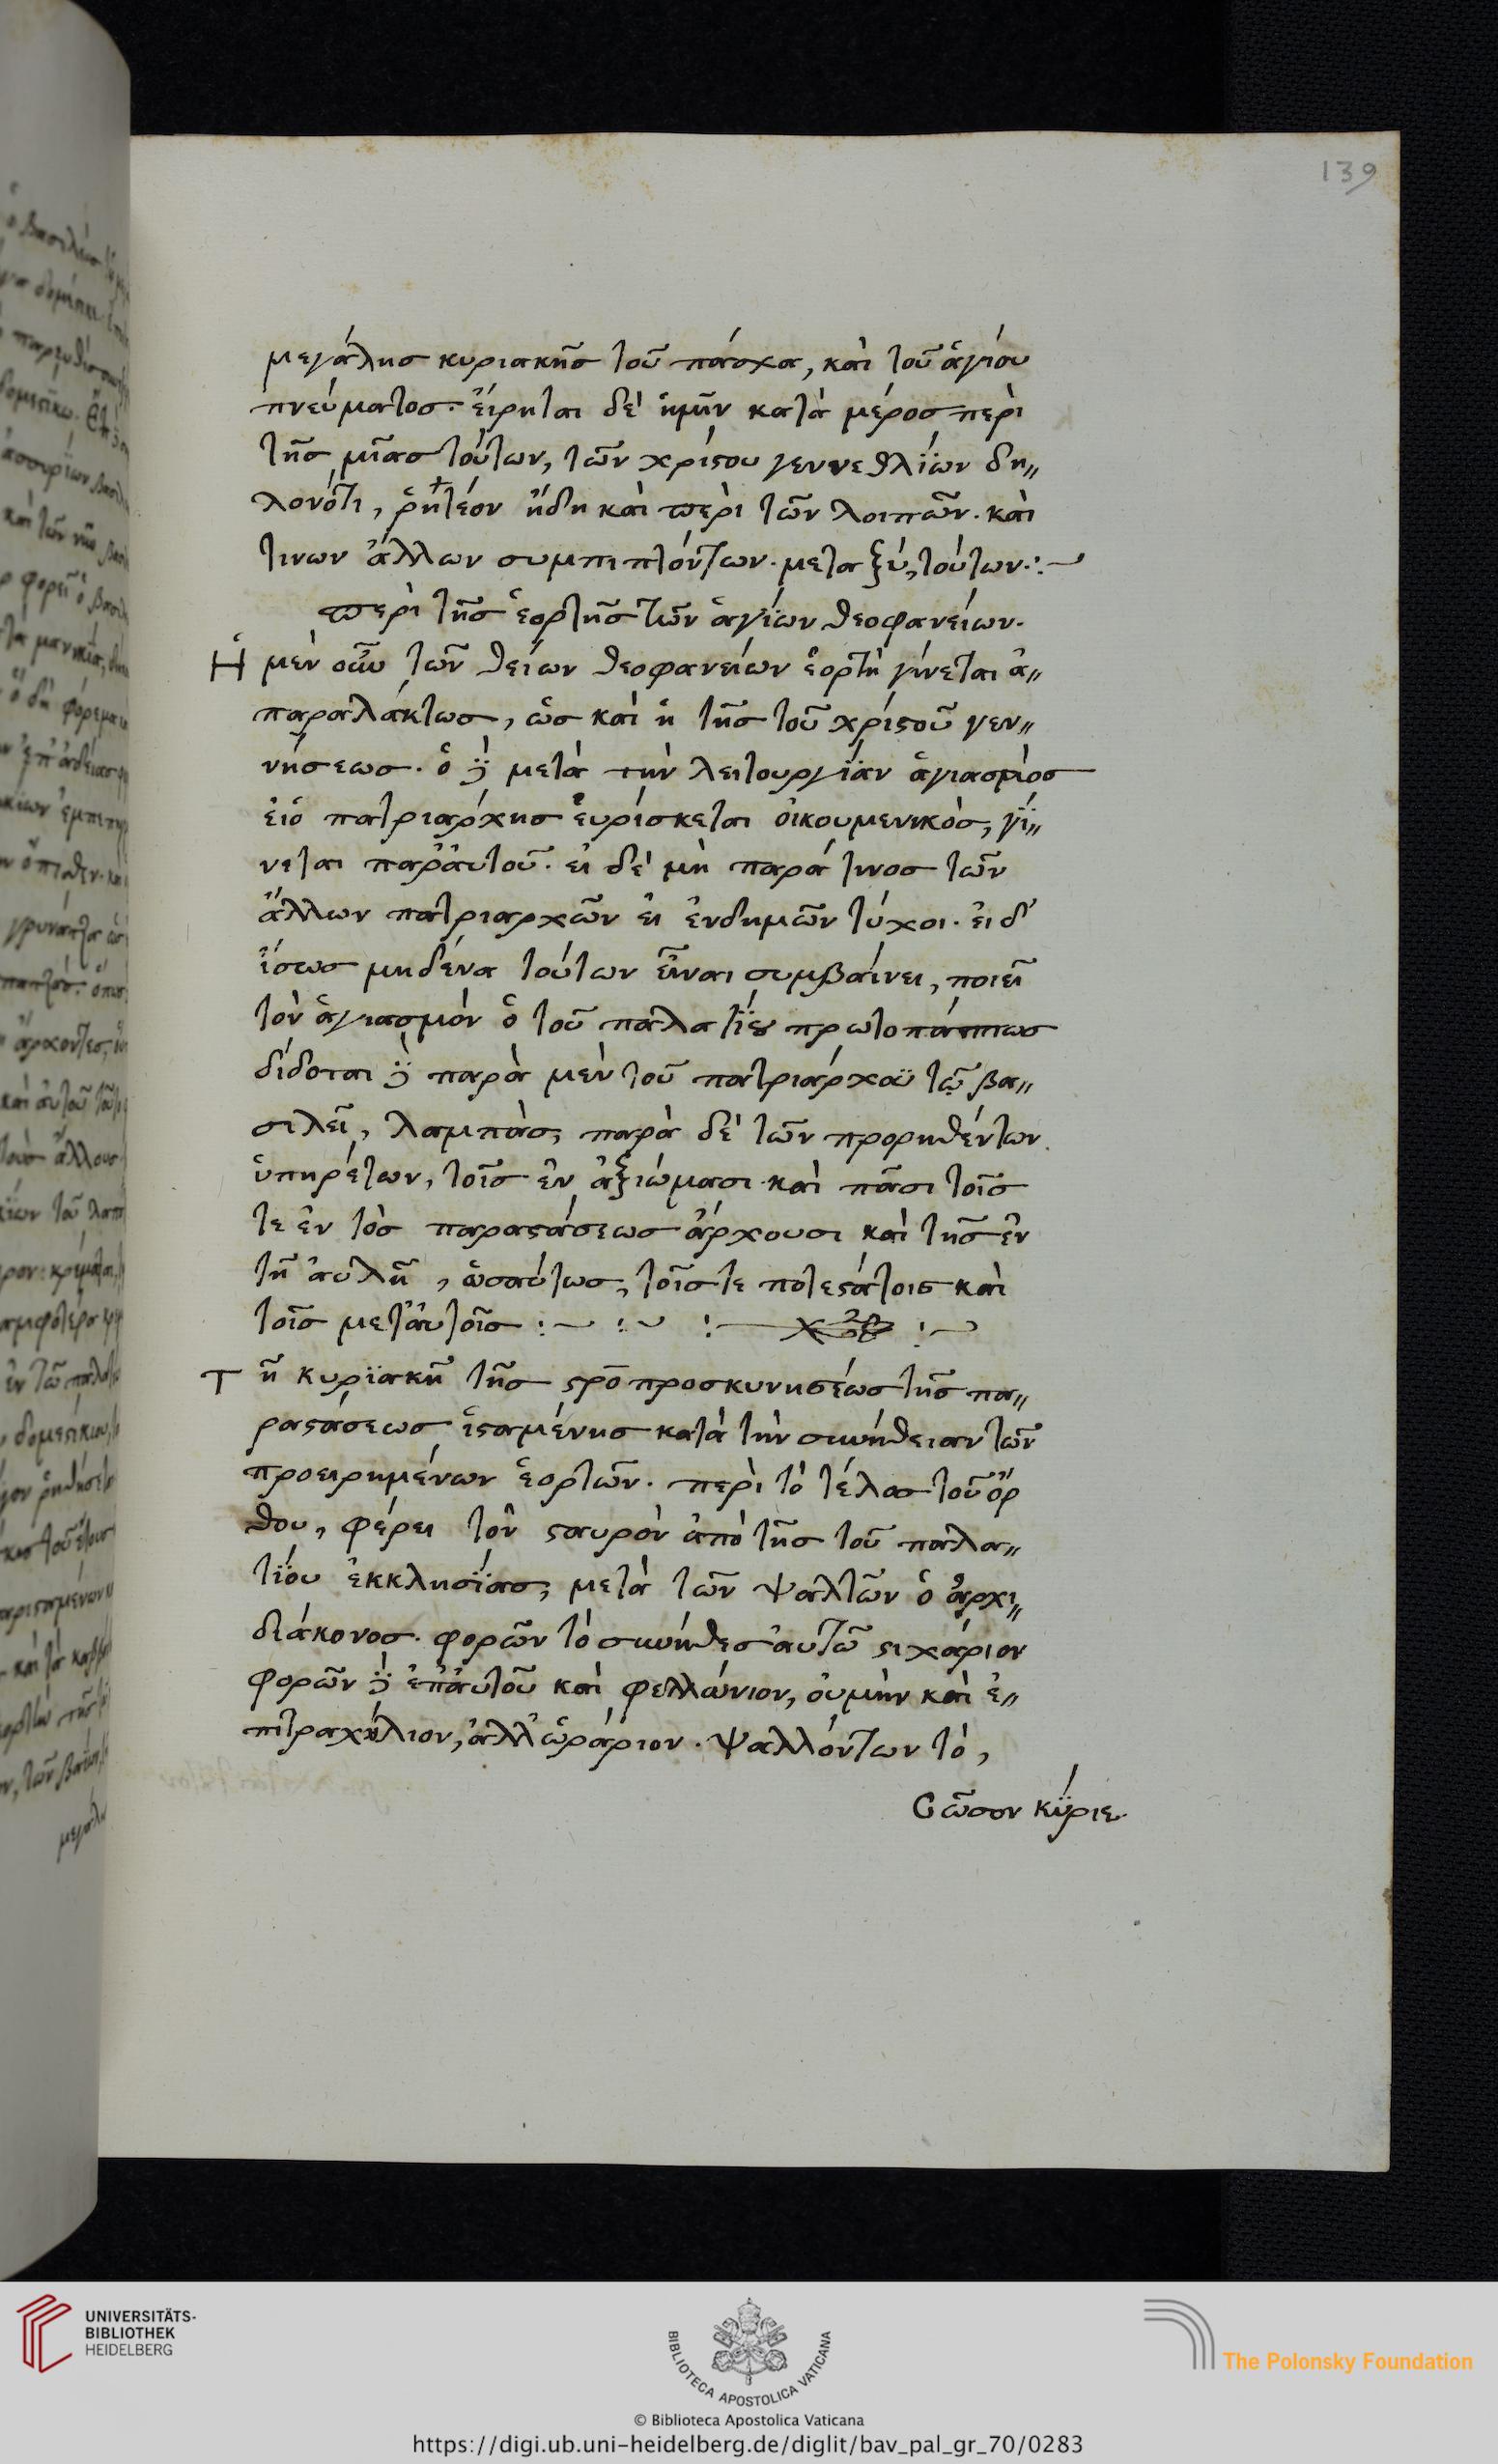 139
μεγάλης κυριακῆς τοῦ πάσχα, καὶ τοῦ ἁγίου
πνεύματος. εἴρηται δὲ ἡμῖν κατὰ μέρος περὶ
τῆς μιᾶς τούτων, τῶν χριστου γεννεθλΐων δη〃
λονότι, ῥητέον ἤδη καὶ περὶ τῶν λοιπῶν. καὶ
τινων ἄλλων συμπιπτόντων. μεταξύ, τούτων. :~
περὶ τῆς ἑορτῆς τῶν ἁγΐων θεοφανείων.
Ἡ μὲν οὖν τῶν θείων θεοφανείων ἑορτὴ γίνεται ἀ〃
παραλάκτως, ὡς καὶ ἡ τῆς τοῦ χριστοῦ γεν〃
νήσεως. ὁ δὲ μετὰ τὴν λειτουργΐαν ἁγιασμὸς
εἰ ὁ πατριάρχης εὑρίσκεται οἰκουμενικὸς, γΐ〃
νεται παρ' ἀυτοῦ. ει δὲ μὴ παρά τινος τῶν
ἄλλων πατριαρχῶν ἐι ἐνδημῶν τύχοι. ἐι δ'
ἴσως μηδένα τούτων εἶναι συμβαίνει, ποιεῖ
τὸν ἁγιασμὸν ὁ τοῦ παλατΐου πρωτοπάππας
δίδοται δὲ παρὰ μὲν τοῦ πατριάρχου τῷ βα〃
σιλεῖ, λαμπὰς, παρὰ δὲ τῶν προρηθέντων
ὑπηρέτων, τοῖς ἐν ἀξιώμασι καὶ πᾶσι τοῖς
τε ἐν τὸς παραστάσεως ἄρχουσι καὶ τῆς ἐν
τῆ ἀυλῆ, ὡσαύτως, τοῖς τε ποτεστάτοις καὶ
τοῖς μετ' ἀυτοῖς :~ :~ :~ :~
Τῆ κυρϊακῆ τῆς στρο προσκυνησέως τῆς πα〃
ραστάσεως ἱσταμένης κατὰ τὴν συνήθειαν τῶν
προειρημένων ἑορτῶν. περὶ τὸ τέλος τοῦ ὄρ
θου, φέρει τὸν σταυρὸν ἀπὸ τῆς τοῦ παλα〃
τΐου ἐκκλησΐας, μετὰ τῶν ψαλτῶν ὁ ἀρχι〃
διάκονος. φορῶν τὸ σύνηθες ἀυτῶ στιχάριον
φορῶν δὲ ἐπ' ἀυτοῦ καὶ φελλώνιον, ὀυ μὴν καὶ ἐ〃
πιτραχήλιον, ἀλλ' ὡράριον. ψαλλόντων τὸ,
Σῶσον κύριε
UNIVERSITÄTS-
BIBLIOTHEK
HEIDELBERG
BIBLIOTECA APOSTOLICA VATICANA
The Polonsky Foundation
© Biblioteca Apostolica Vaticana
https://digi.ub.uni-heidelberg.de/diglit/bav_pal_gr_70/0283